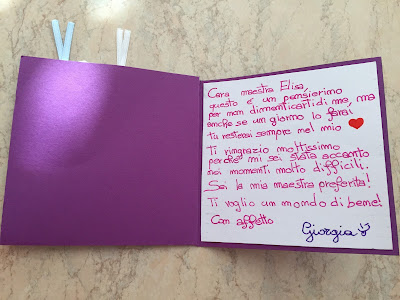 Cara maestra Elisa,
questo è un pensierino
per non dimenticarti di me, ma
anche se un giorno lo farai
tu resterai sempre nel mio ❤
Ti ringrazio moltissimo
perché mi sei stata accanto
nei momenti molto difficili.
Sei la mia maestra preferita!
Ti voglio un mondo di bene!
Con affetto
Giorgia